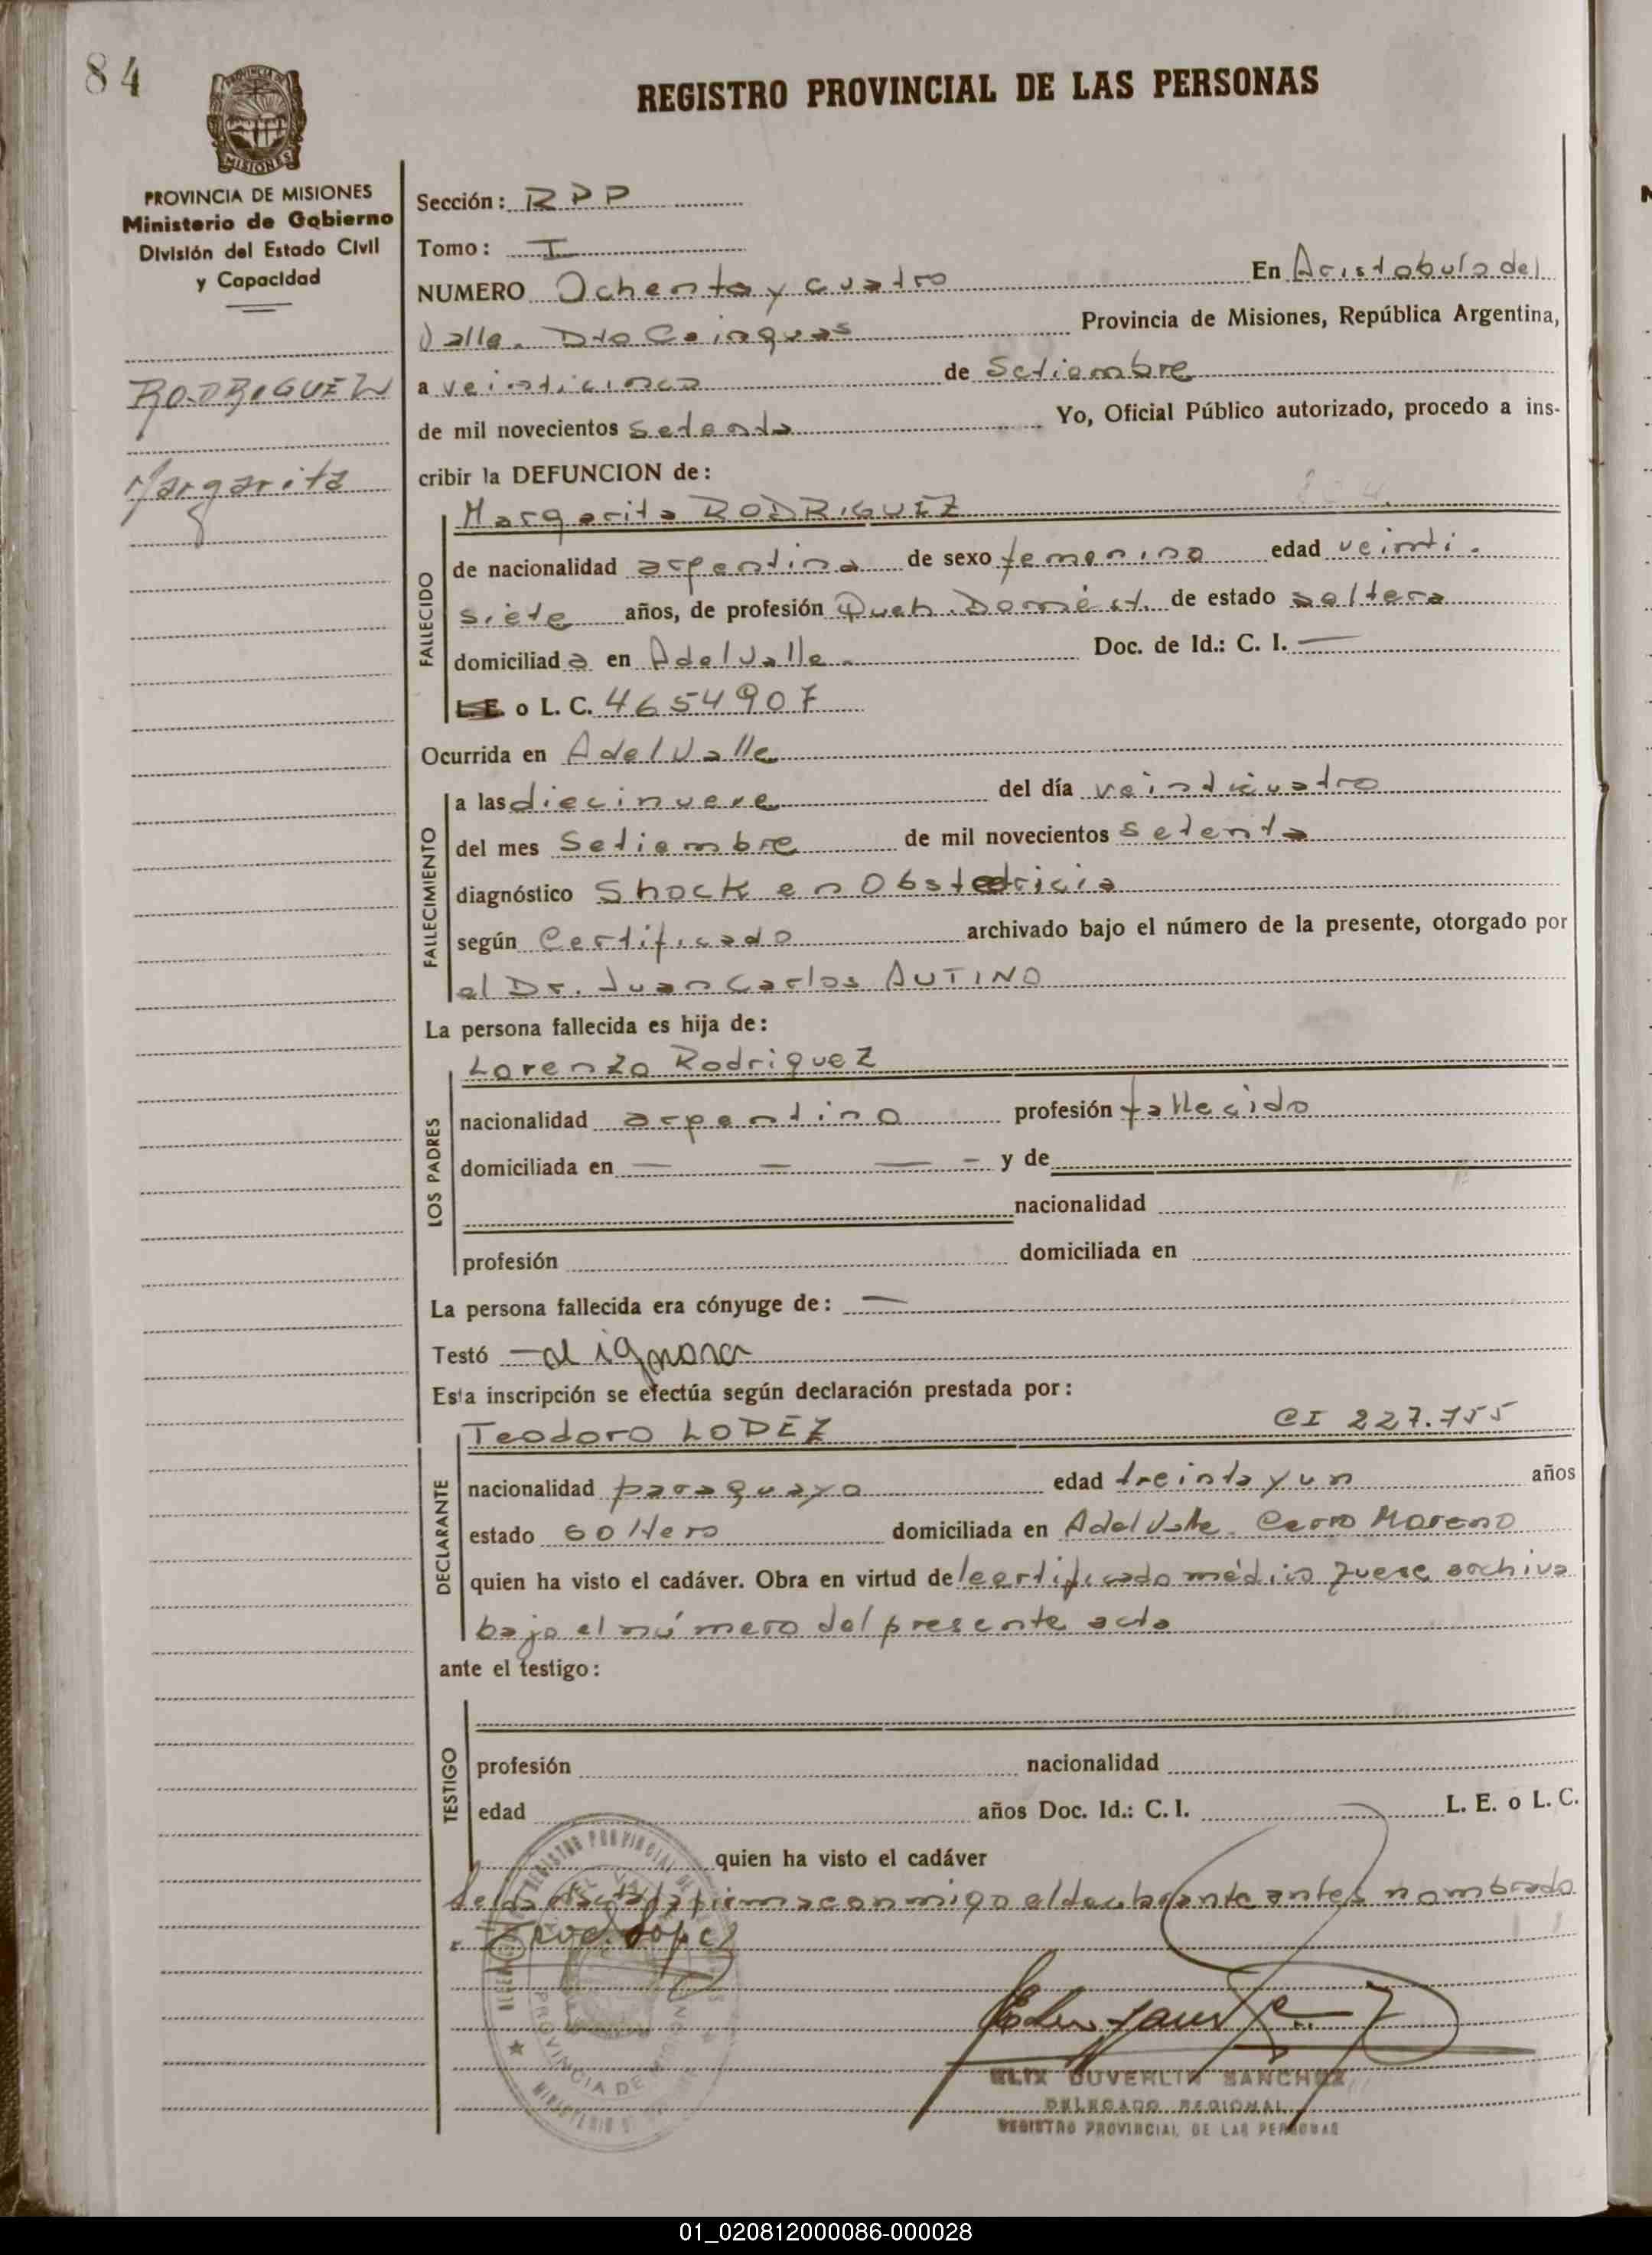 84
PROVINCIA DE
MISIONES
PROVINCIA DE MISIONES
Ministerio de Gobierno
División del Estado Civil
y Capacidad
RODRIGUEZ
Margarita
REGISTRO PROVINCIAL DE LAS PERSONAS
Sección: RPP
Tomo: I
NUMERO Ochenta y cuatro En Aristobulo del
Valle. Dto Cainguas Provincia de Misiones, República Argentina,
a veinticinco de Setiembre
de mil novecientos setenta Yo, Oficial Público autorizado, procedo a ins-
cribir la DEFUNCION de:
FALLECIDO
Margarita RODRIGUEZ
de nacionalidad argentina de sexo femenino edad veinti.
siete años, de profesión Queh. Domést. de estado soltera
domiciliada en Adel Valle. Doc. de Id.: C. I. —
L.E. o L. C. 4654907
Ocurrida en Adel Valle
FALLECIMIENTO
a las diecinueve del día veinticuatro
del mes Setiembre de mil novecientos setenta
diagnóstico Shock en Obstetricia
según Certificado archivado bajo el número de la presente, otorgado por
el Dr. Juan Carlos AUTINO
La persona fallecida es hija de:
LOS PADRES
Lorenzo Rodriguez
nacionalidad argentino profesión fallecido
domiciliada en — — — – y de
nacionalidad
profesión domiciliada en
La persona fallecida era cónyuge de: —
Testó —
Esta inscripción se efectúa según declaración prestada por:
DECLARANTE
Teodoro LOPEZ CI 227.755
nacionalidad paraguayo edad treinta y un años
estado soltero domiciliada en Adel Valle. Cerro Moreno
quien ha visto el cadáver. Obra en virtud del certificado médico quese archiva
bajo el número del presente acta
ante el testigo:
TESTIGO
profesión nacionalidad
edad años Doc. Id.: C. I. L. E. o L. C.
quien ha visto el cadáver
firma conmigo el declarante antes nombrado
Lopez
REGISTRO PROVINCIAL DE
PROVINCIA DE
ELIX DUVERLIN SANCHEZ
DELEGADO REGIONAL
REGISTRO PROVINCIAL DE LAS PERSONAS
01_020812000086-000028